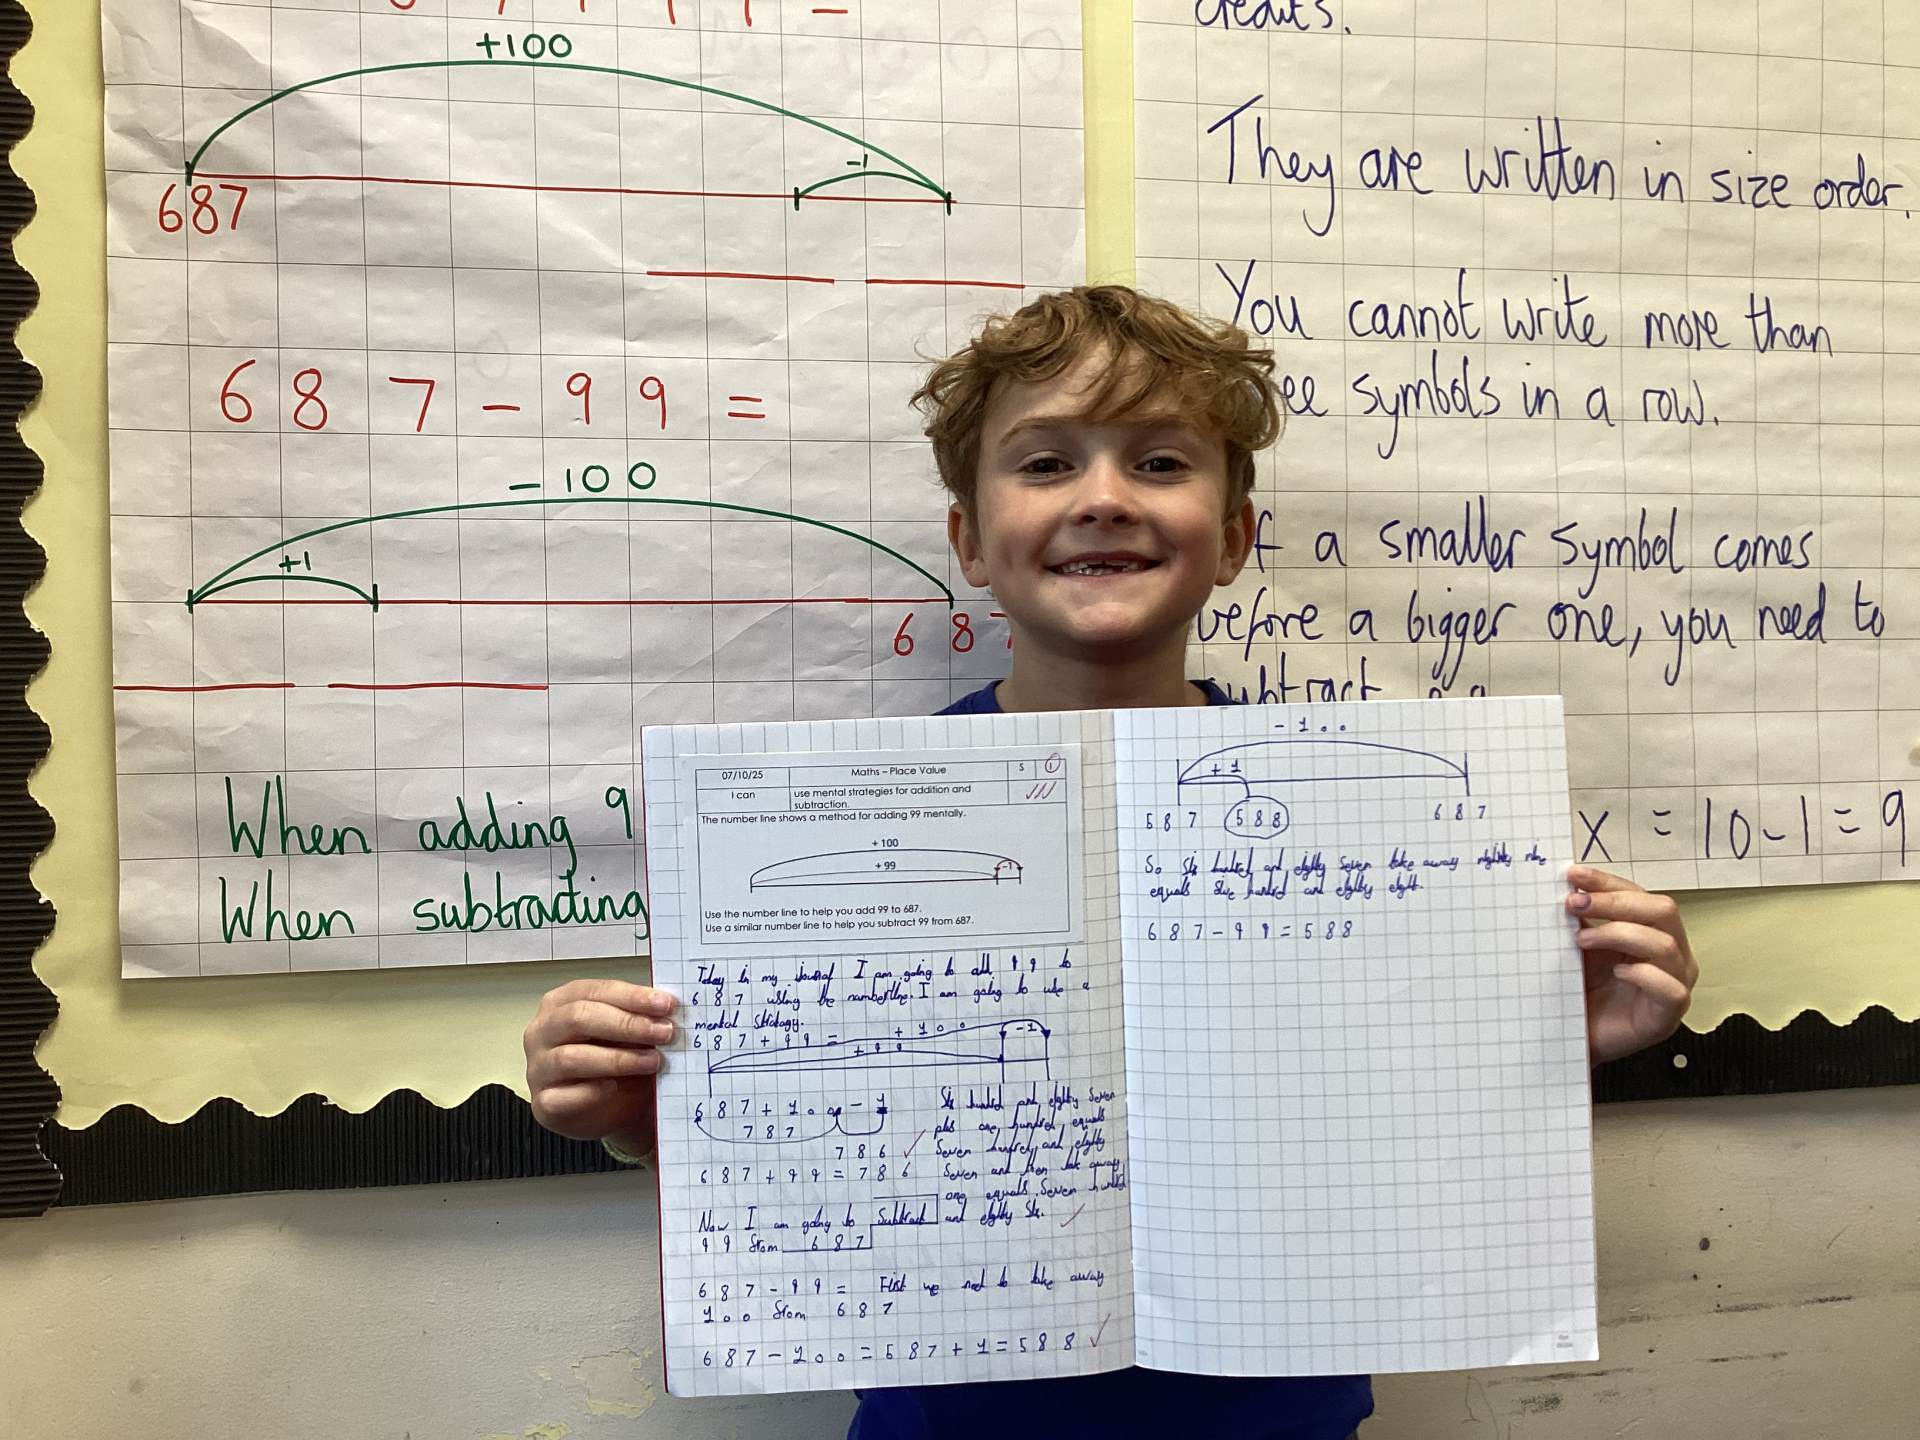 +100
-1
687
687-99=
-100
+1
68
When adding 9
When subtracting
credits.
They are written in size order.
You cannot write more than
ee symbols in a row.
f a smaller symbol comes
before a bigger one, you need to
subtract
X = 10-1=9
07/10/25 Maths – Place Value S 1
I can use mental strategies for addition and
subtraction.
The number line shows a method for adding 99 mentally.
+ 100
+ 99
-1
Use the number line to help you add 99 to 687.
Use a similar number line to help you subtract 99 from 687.
Today in my journal I am going to add 99 to
687 using the numberline. I am going to use a
mental strategy.
687+99=
+100
-1
+99
687+100-1
787
786
687+99=786
Six hundred and eighty seven
plus one hundred equals
Seven hundred and eighty
Seven and then take away
one equals Seven hundred
and eighty six.
Now I am going to Subtract
99 from 687
687-99= First we need to take away
100 from 687
687-100=587+1=588
-100
+1
587 588 687
So Six hundred and eighty seven take away ninety nine
equals five hundred and eighty eight.
687-99=588